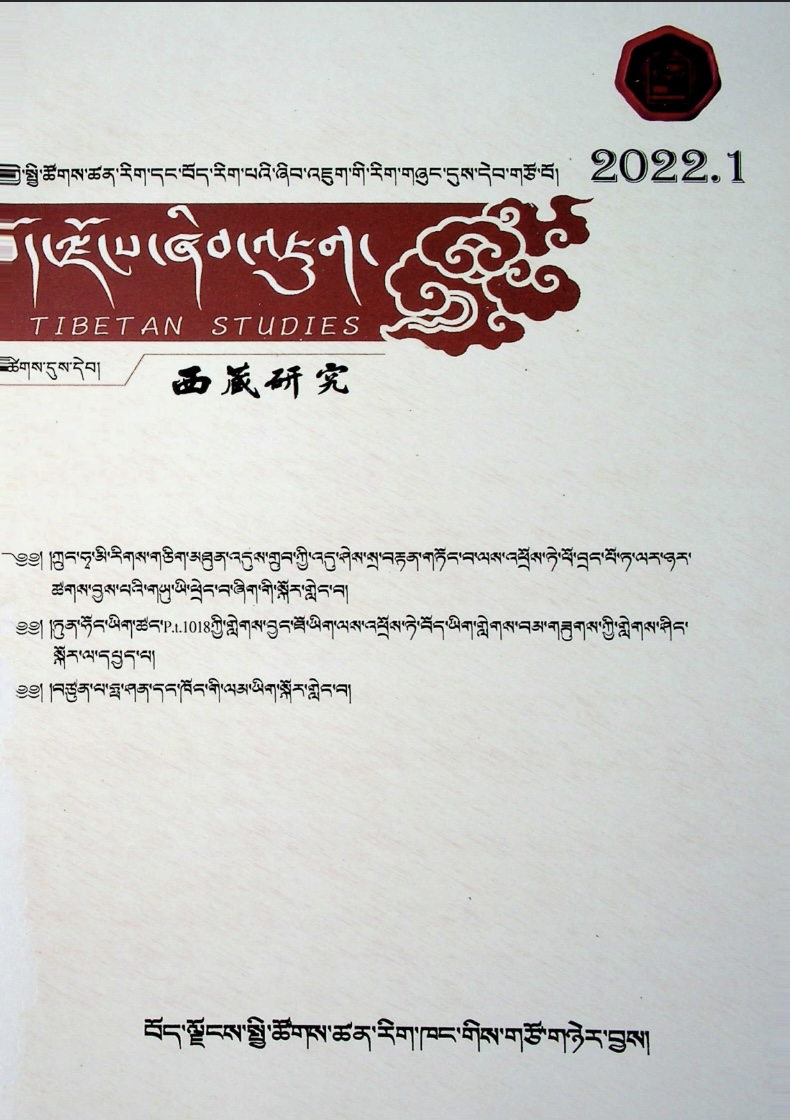 སྤྱི་ཚོགས་ཚན་རིག་དང་བོད་རིག་པའི་ཞིབ་འཇུག་གི་རིག་གཞུང་དུས་དེབ་གཙོ་བོ།
2022.1
བོད་ལྗོངས་ཞིབ་འཇུག
TIBETAN STUDIES
ཚོགས་དུས་དེབ།
西藏研究
༄༅། །ཀྲུང་ཧྭ་མི་རིགས་གཅིག་མཐུན་འདུས་གྲུབ་ཀྱི་འདུ་ཤེས་སྲ་བརྟན་གཏོང་བ་ལས་འཕྲོས་ཏེ་ཕོ་བྲང་པོ་ཏ་ལར་ཉར་
ཚགས་བྱས་པའི་གཡུ་ཡི་ཕྲེང་བ་ཞིག་གི་སྐོར་གླེང་བ།
༄༅། །ཏུན་ཧོང་ཡིག་ཚང་P.t.1018ཀྱི་གླེགས་བྱང་ཐོ་ཡིག་ལས་འཕྲོས་ཏེ་བོད་ཡིག་གླེགས་བམ་གཟུགས་ཀྱི་གླེགས་ཤིང་
སྐོར་ལ་དཔྱད་པ།
༄༅། །བཙུན་པ་ཧྭ་ཤན་དང་ཁོང་གི་ལམ་ཡིག་སྐོར་གླེང་བ།
བོད་ལྗོངས་སྤྱི་ཚོགས་ཚན་རིག་ཁང་གིས་གཙོ་གཉེར་བྱས།